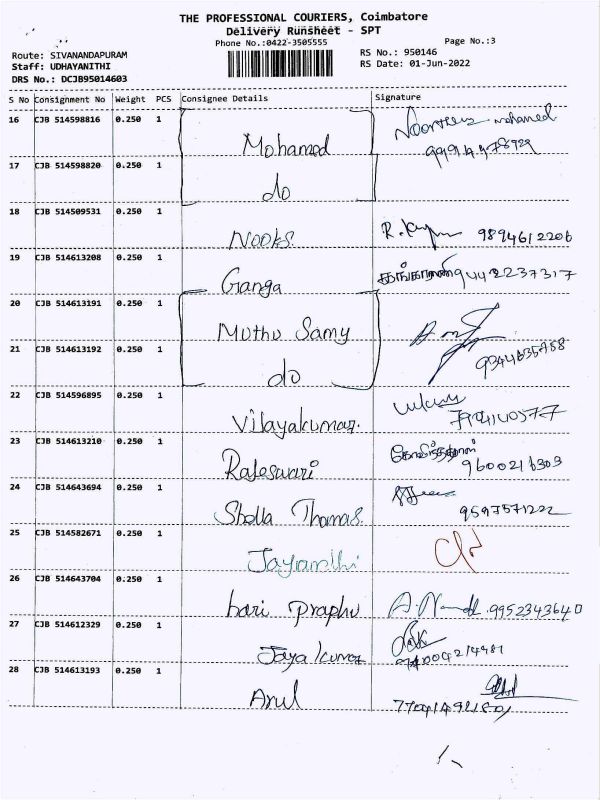 THE PROFESSIONAL COURIERS, Coimbatore
Delivery Runsheet - SPT
Phone No.:0422-3505555
Page No.:3
Route: SIVANANDAPURAM
Staff: UDHAYANITHI
DRS No.: DCJB95014603
RS No.: 950146
RS Date: 01-Jun-2022
S No Consignment No Weight PCS Consignee Details Signature
16 CJB 514598816 0.250 1 Mohamed mohamed
17 CJB 514598820 0.250 1 do
18 CJB 514509531 0.250 1 Nooks. 9894612206
19 CJB 514613208 0.250 1 Ganga 9442237317
20 CJB 514613191 0.250 1 Muthu Samy
21 CJB 514613192 0.250 1 do 9344635758
22 CJB 514596895 0.250 1 Vijayakumar.
23 CJB 514613210 0.250 1 Rajeswari 9600216309
24 CJB 514643694 0.250 1 Shella Thomas. 9597571222
25 CJB 514582671 0.250 1 Jayanthi
26 CJB 514643704 0.250 1 hari praphu 9952343640
27 CJB 514612329 0.250 1 Jaya kumar
28 CJB 514613193 0.250 1 Arul